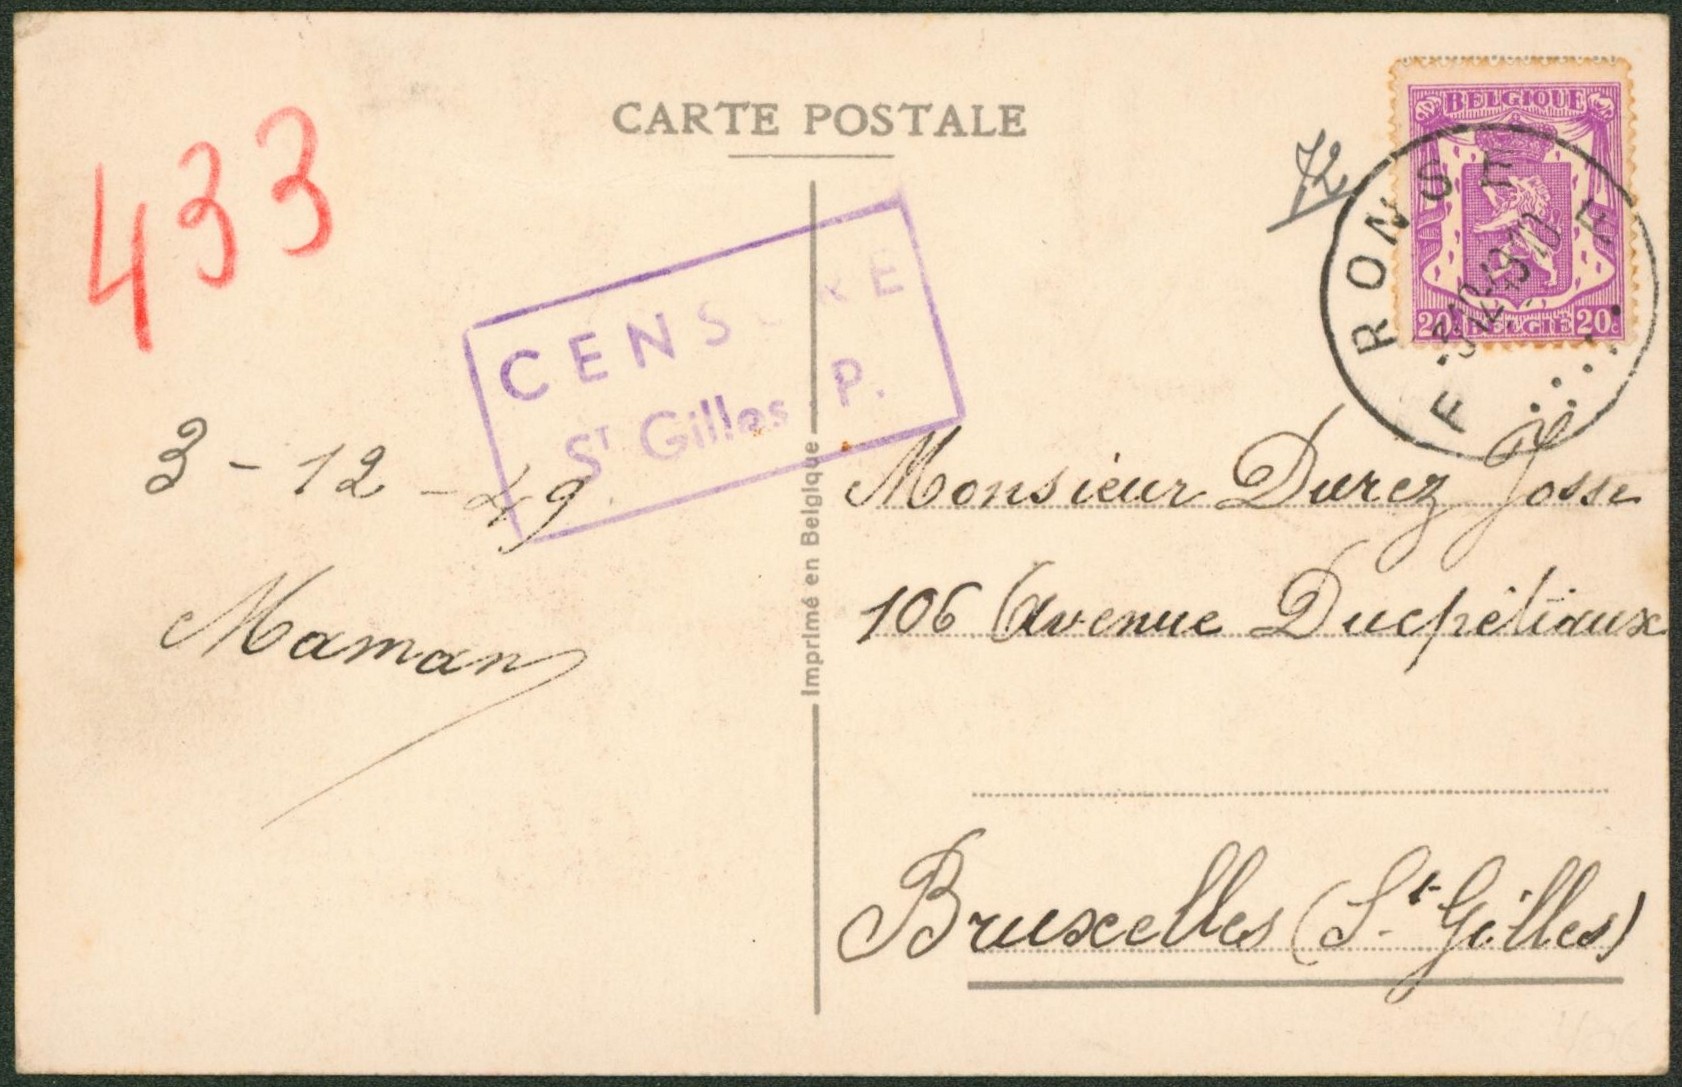 CARTE POSTALE
433
72
BELGIQUE
20c BELGIË 20c
RONSE
3 12 49 10
CENSURE
St Gilles P.
3-12-49
Maman
Imprimé en Belgique
Monsieur Durez Josse
106 Avenue Ducpétiaux
Bruxelles (St Gilles)